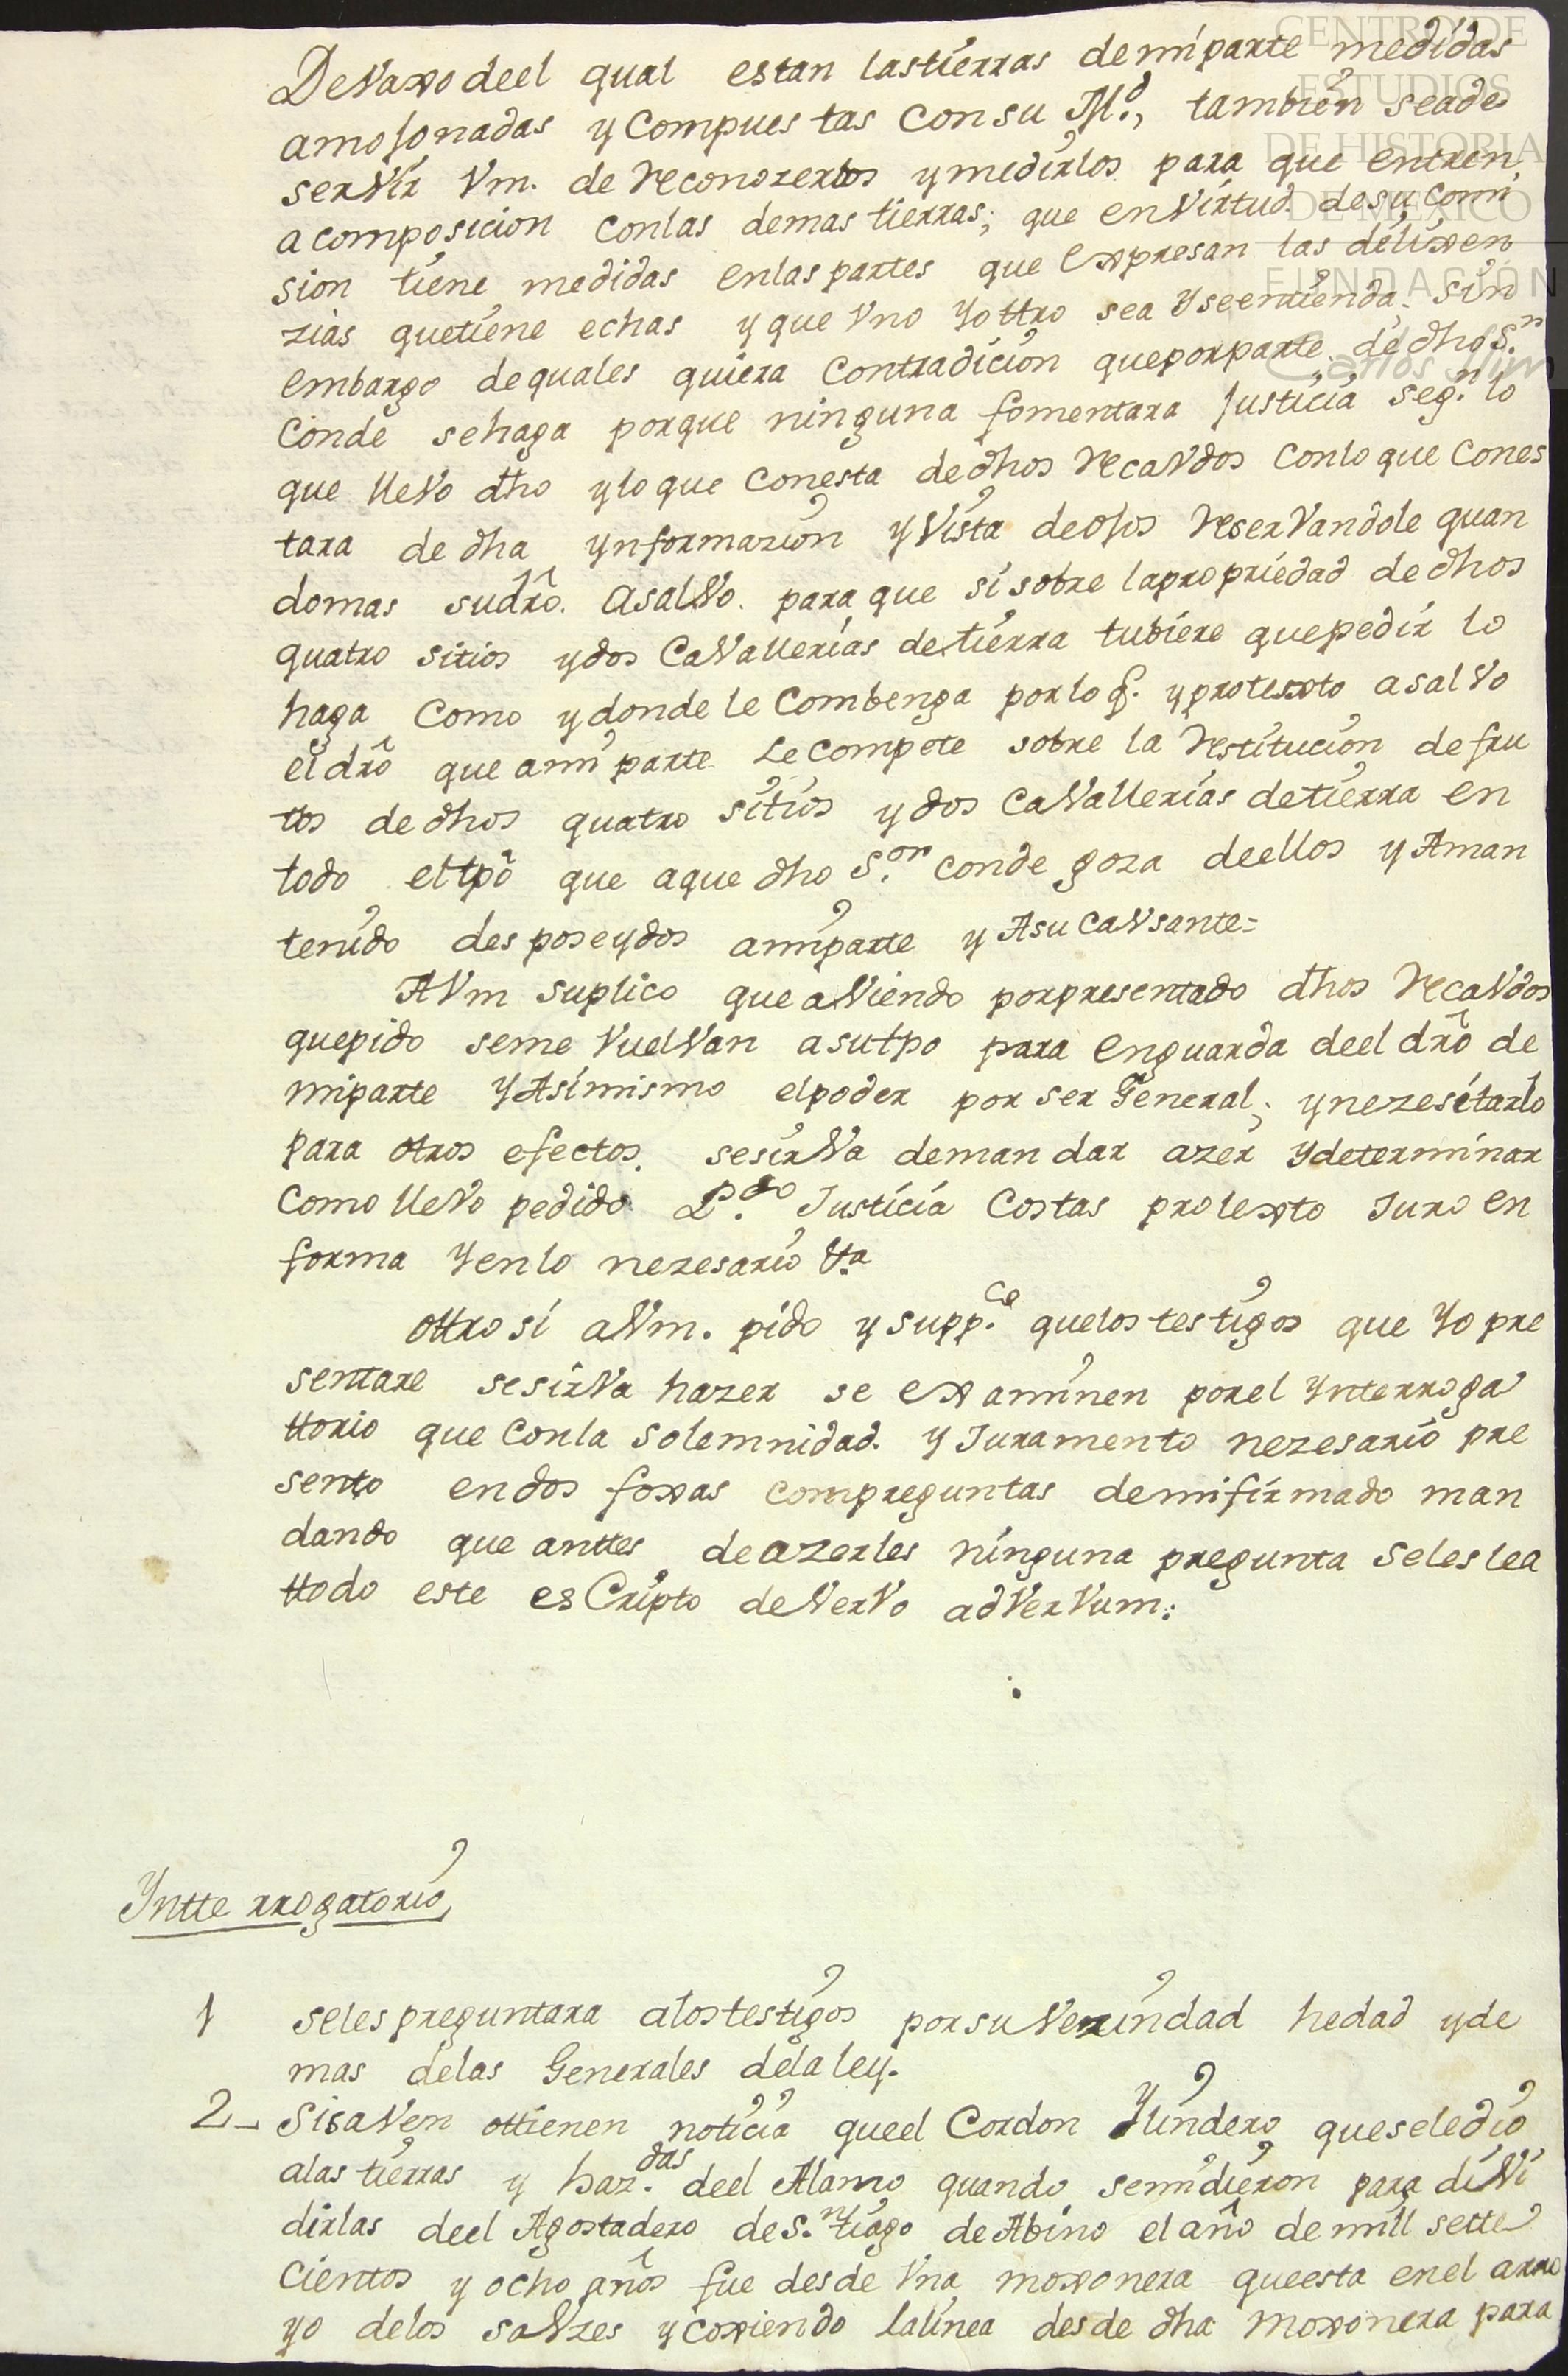 CENTRO DE
ESTUDIOS
DE HISTORIA
DE MÉXICO
FUNDACIÓN
Carlos Slim
DeVaxo deel qual estan lastierras demiparte medidas
amoJonadas y Compuestas Con su M.d, tambien seade
serVir Vm. de reconozerlos ymedirlos para que entren
a composicion Conlas demas tierras; que enVirtud desu Comi
sion tiene medidas enlaspartes que expresan las delixen
zias quetiene echas y que Vno Yottro sea Yseentienda sin
embargo dequales quiera Contradicion queporparte de dho S.r
Conde sehaga porque ninguna fomentara Justicia seg.n lo
que lleVo dho yloque Conesta dedhos recaVdos Conloque Cones
tara de dha ynformazion yVista deoJos reserVandole quan
domas sudrô. asalVo. para que si sobre lapropriedad dedhos
quatro sitios ydos CaVallerias detierra tubiere quepedir lo
haga Como ydonde le Combenga porlo q. yprotexto asalVo
el drô que ami parte Le Compete sobre la restitucion defru
tos dedhos quatro sitios ydos CaVallerias detierra en
todo eltpô que aque dho S.or Conde goza deellos y Aman
tenido desposeydos amiparte y Asu CaVsante=
AVm suplico que aViendo porpresentado dhos recaVdos
quepido seme VuelVan asutpo para enguarda deel drô de
miparte YAsimismo elpoder por ser General; ynezesitarlo
para otros efectos. sesirVa demandar azer Ydeterminar
Como lleVo pedido P.do Justicia Costas protexto Juro en
forma Yenlo nezesario &a
ottro si aVm. pido y supp.co quelos testigos que Yo pre
sentare sesirVa hazer se examinen porel Ynterroga
ttorio que Conla solemnidad. y Juramento nezesario pre
sento endos foxas compreguntas demifirmado man
dando que anttes deazerles ninguna pregunta seleslea
ttodo este esCripto deVerVo adVerVum:
Yntte rrogatorio
1 selespreguntara alostestigos porsuVezindad hedad yde
mas delas Generales delaley.
2_ SisaVen ottienen noticia queel Cordon Ylindero queseledio
alas tierras y haz.das deel Alamo quando semidieron para diVi
dirlas deel Agostadero deS.ntiago de Abino el año demill sette
Cientos y ocho años fue desde Vna moxonera queesta enel arro
yo delos saVzes ycoxiendo lalinea desde dha moxonera para